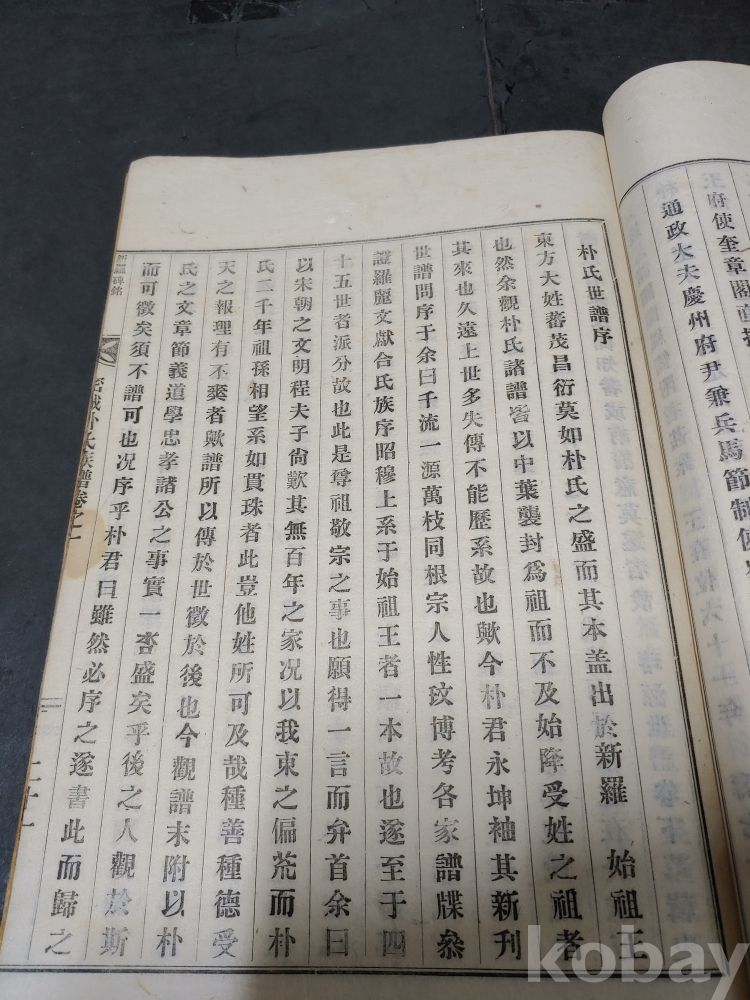 府使奎章閣直
通政大夫慶州府尹兼兵馬節制使
朴氏世譜序
東方大姓蕃茂昌衍莫如朴氏之盛而其本盖出於新羅 始祖王
也然余觀朴氏諸譜皆以中葉襲封爲祖而不及始降受姓之祖者
其來也久遠上世多失傳不能歷系故也歟今朴君永坤袖其新刊
世譜問序于余曰千流一源萬枝同根宗人性玟博考各家譜牒叅
證羅麗文獻合氏族序昭穆上系于始祖王者一本故也遂至于四
十五世者派分故也此是尊祖敬宗之事也願得一言而弁首余曰
以宋朝之文明程夫子尙歎其無百年之家况以我東之偏荒而朴
氏二千年祖孫相望系如貫珠者此豈他姓所可及哉種善種德受
天之報理有不爽者歟譜所以傳於世徵於後也今觀譜末附以朴
氏之文章節義道學忠孝諸公之事實一呇盛矣乎後之人觀於斯
而可徵矣須不譜可也况序乎朴君曰雖然必序之遂書此而歸之
碑銘
密城朴氏族譜卷之一
二十一
kobay